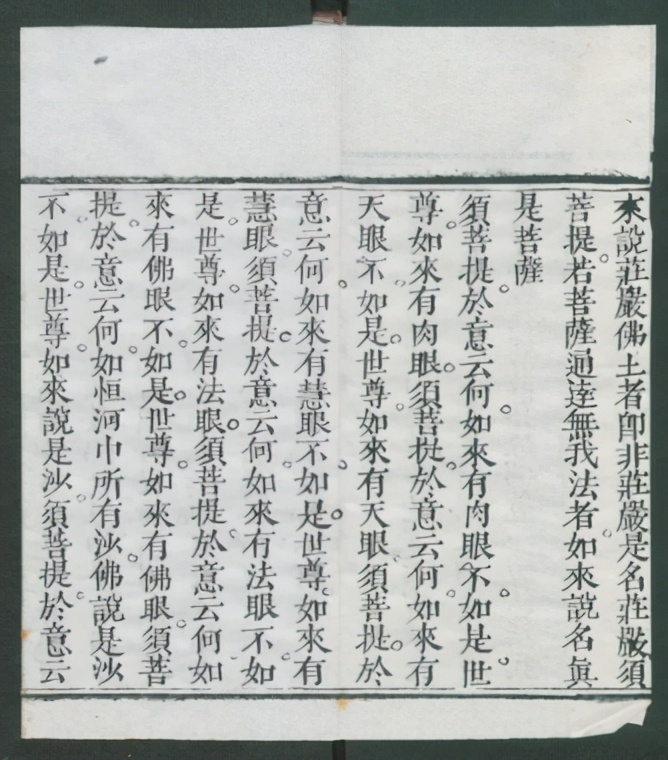 來說莊嚴佛土者即非莊嚴是名莊嚴須
菩提若菩薩通達無我法者如來說名眞
是菩薩
須菩提於意云何如來有肉眼不如是世
尊如來有肉眼須菩提於意云何如來有
天眼不如是世尊如來有天眼須菩提於
意云何如來有慧眼不如是世尊如來有
慧眼須菩提於意云何如來有法眼不如
是世尊如來有法眼須菩提於意云何如
來有佛眼不如是世尊如來有佛眼須菩
提於意云何如恒河中所有沙佛說是沙
不如是世尊如來說是沙須菩提於意云